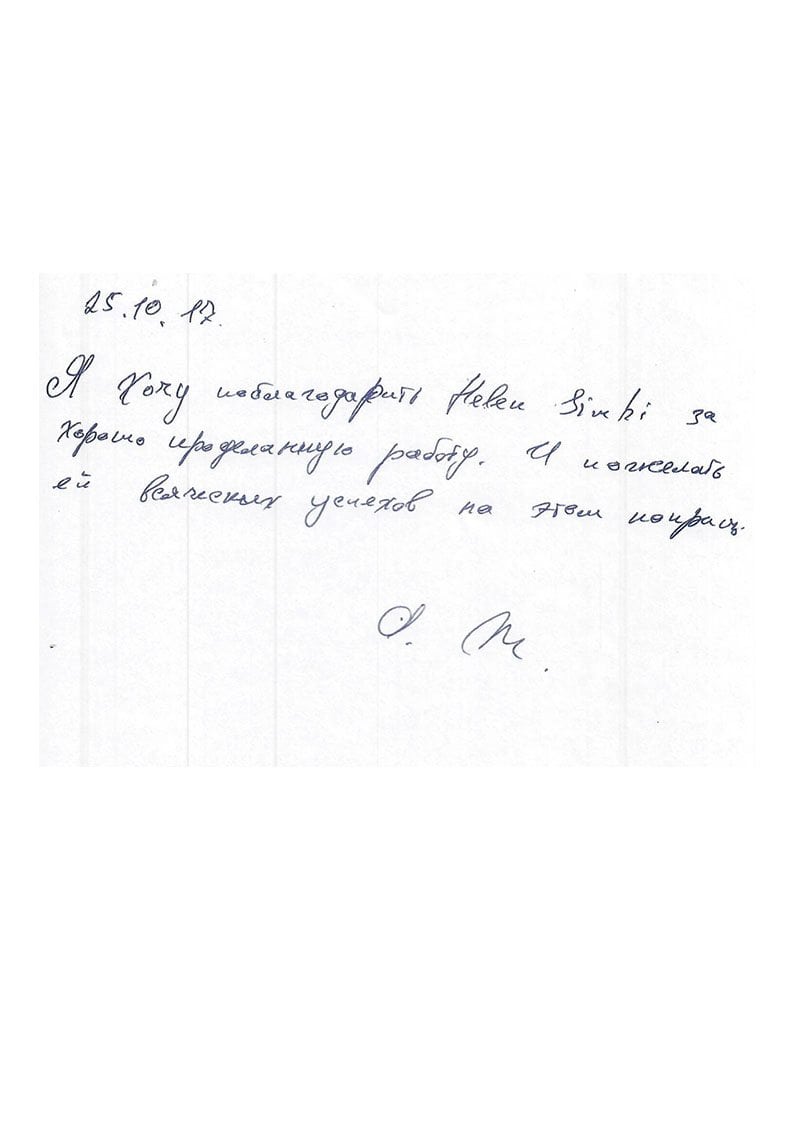 25.10.17.
Я Хочу поблагодарить Helen Simki за
хорошо проделанную работу. И пожелать
ей всяческих успехов на этом поприщ.
О. М.